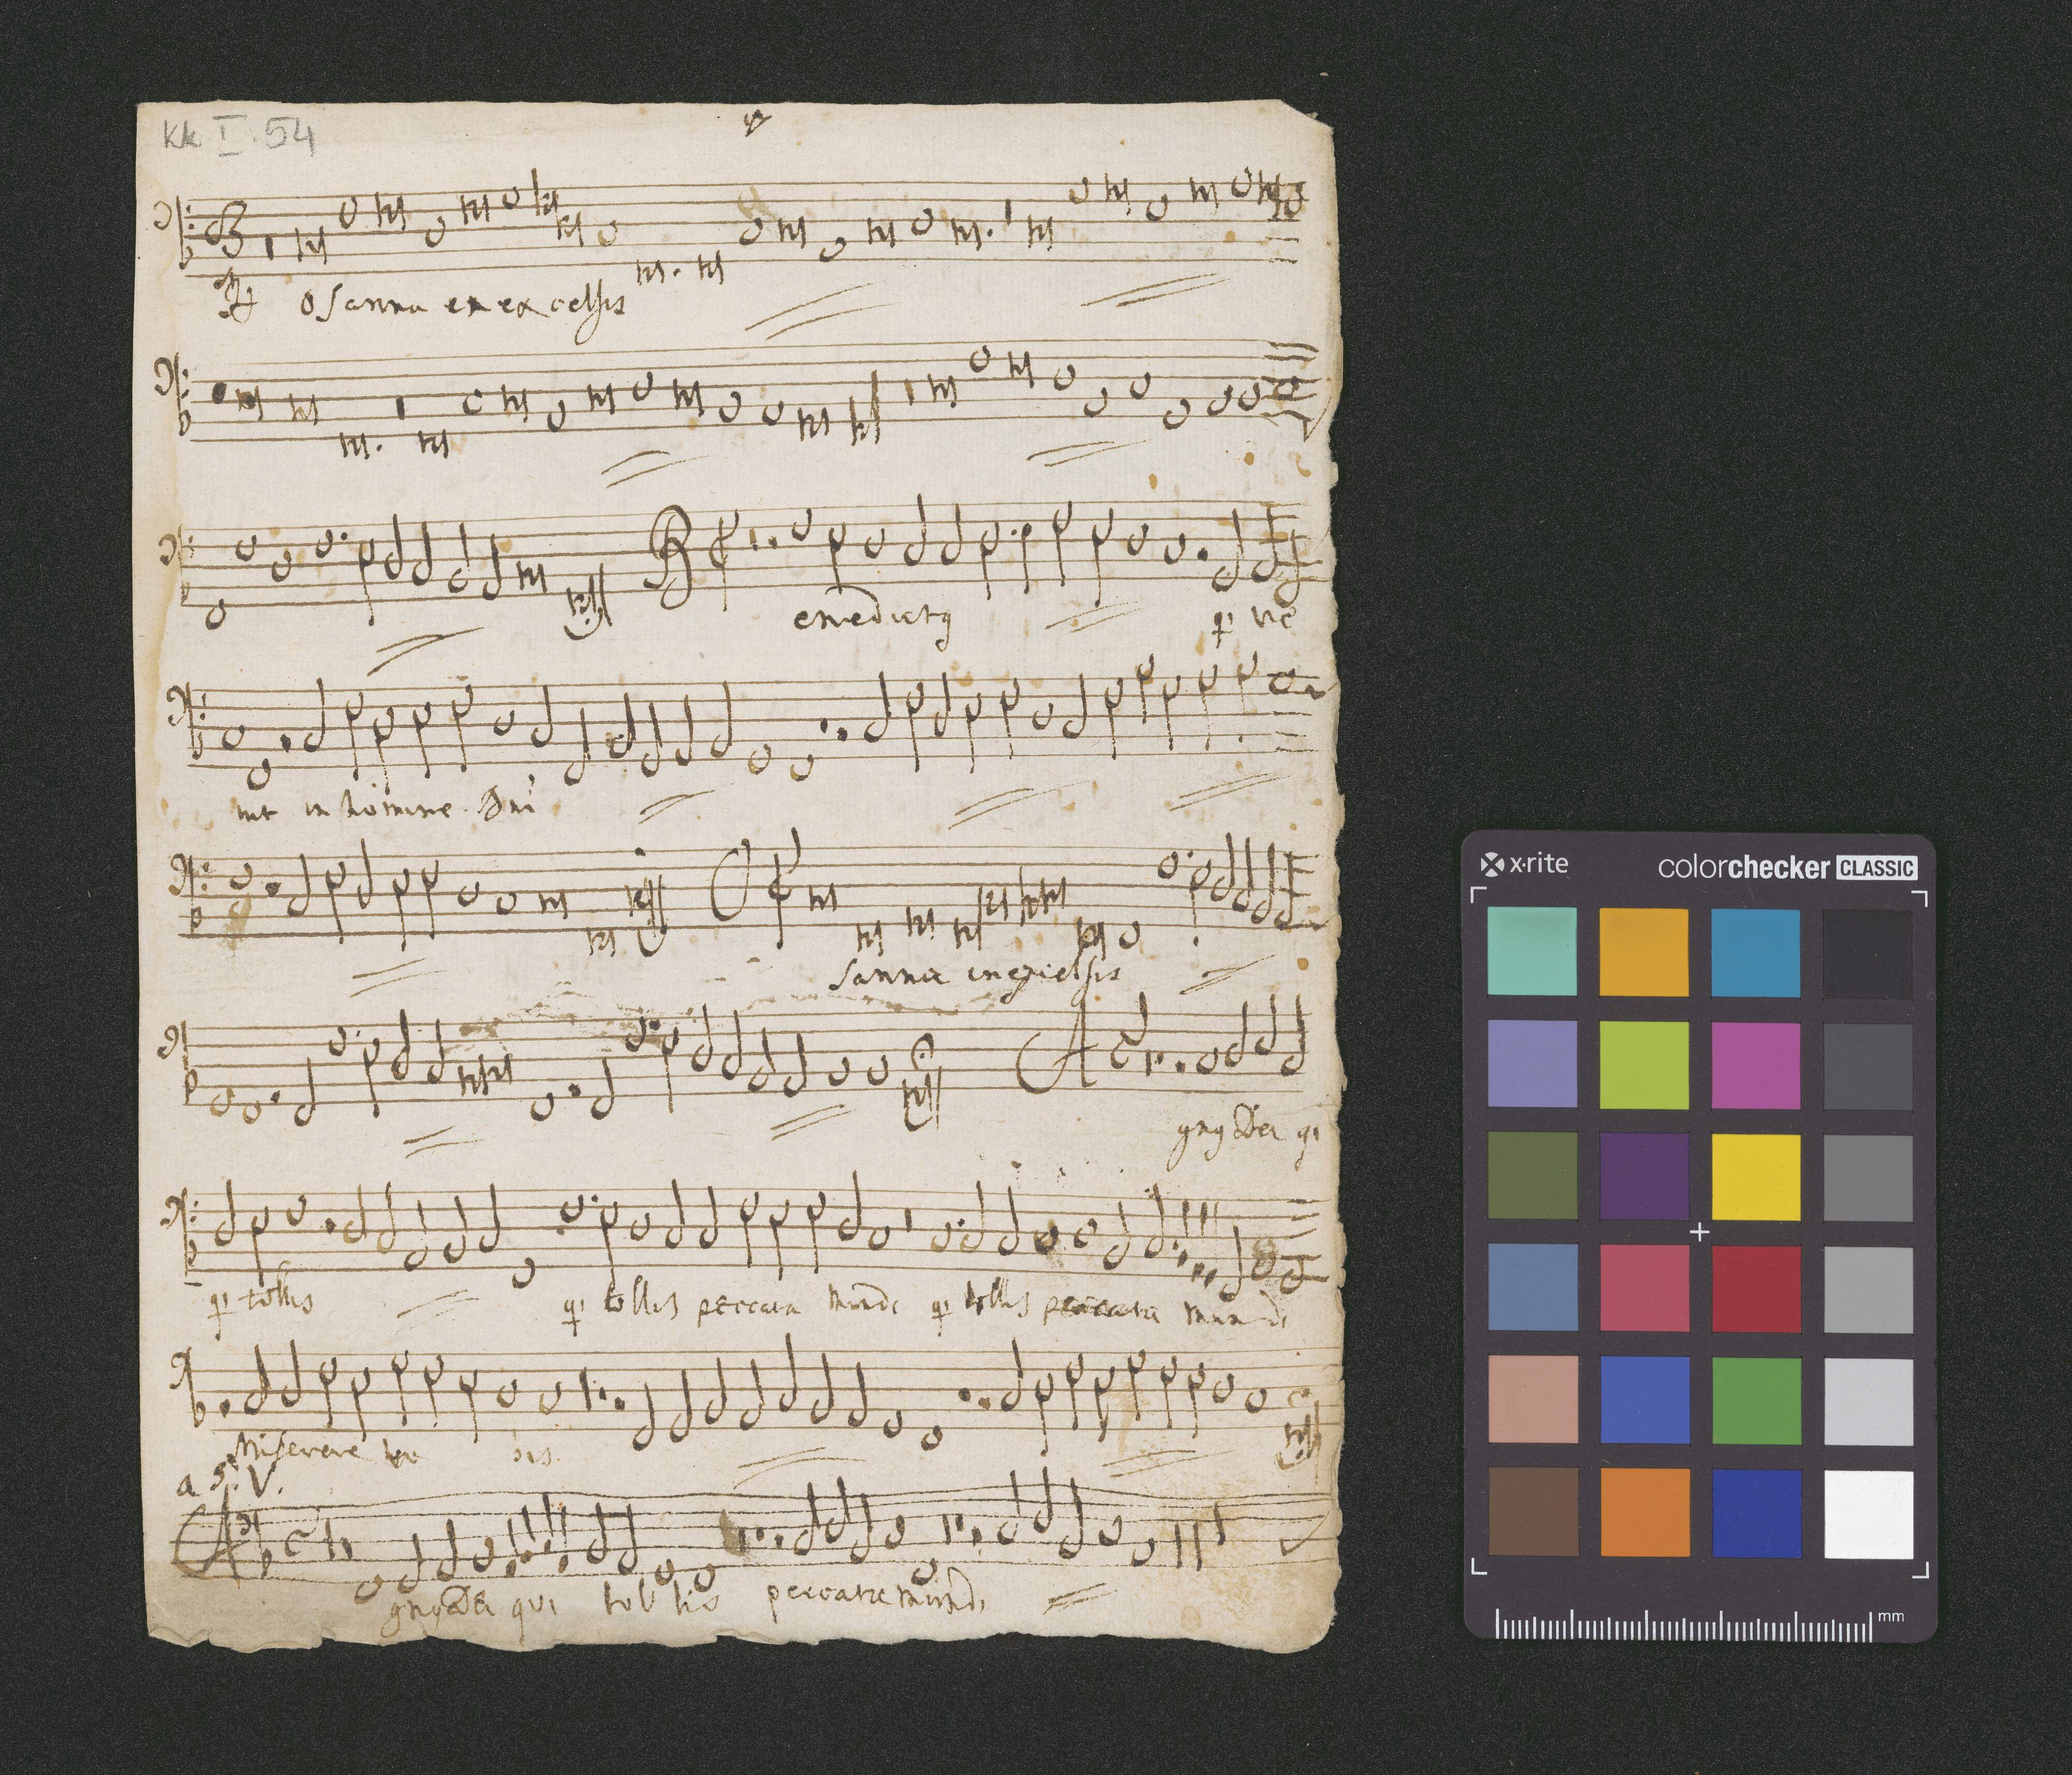 kk I. 54
Osanna en ex celsis
B enedictus qi ve
nit in nomine Dni
O sanna in excelsis
A gnus Dei qi
qi tollis qi tollis peccata mundi qi tollis peccata mundi
Miserere no bis
a 5. V.
A gnus Dei qui tol lis peccata mundi
x·rite colorchecker CLASSIC
mm